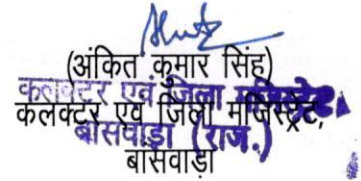 (अंकित कुमार सिंह)
कलक्टर एवं जिला मजिस्ट्रेट
कलेक्टर एवं जिला मजिस्ट्रेट,
बांसवाड़ा (राज.)
बांसवाड़ा